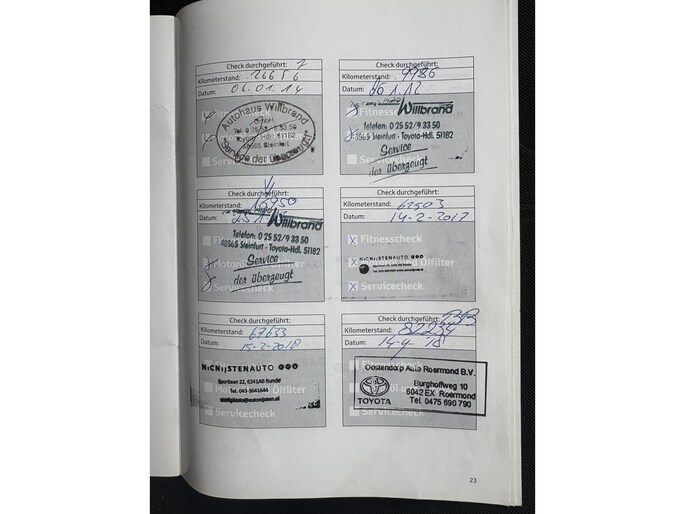 Check durchgeführt:
Kilometerstand: 26656
Datum: 06.01.14
Autohaus Willbrand
GmbH
48565 Steinfurt
"Service der überzeugt"
Servicecheck
Check durchgeführt:
Kilometerstand: 9986
Datum: 1.12
Fitnesscheck
Willbrand
Telefon: 0 25 52/9 33 50
48565 Steinfurt - Toyota-Hdl. 51182
Service
der überzeugt
Check durchgeführt:
Kilometerstand: 16950
Datum: 25.1
Willbrand
Telefon: 0 25 52/9 33 50
48565 Steinfurt - Toyota-Hdl. 51182
Service
der überzeugt
Check durchgeführt:
Kilometerstand:
Datum: 14-2-2017
x Fitnesscheck
NICNIJSTENAUTO
Ölfilter
x Servicecheck
Check durchgeführt:
Kilometerstand: 67633
Datum: 15-2-2018
NICNIJSTENAUTO
Sportlaan 22, 6241AB Bunde
Tel. 043-3641644
Servicecheck
Check durchgeführt:
Kilometerstand: 82234
Datum:
Oostendorp Auto Roermond B.V.
TOYOTA
Burghoffweg 10
6042 EX Roermond
Tel. 0475 690 790
Servicecheck
23